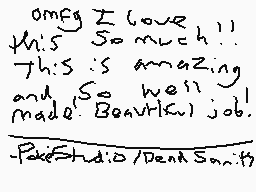 omfg I love
this so much!!
This is amazing
and so well
made! Beautiful job!
-PokeStudio/Dead Sanity